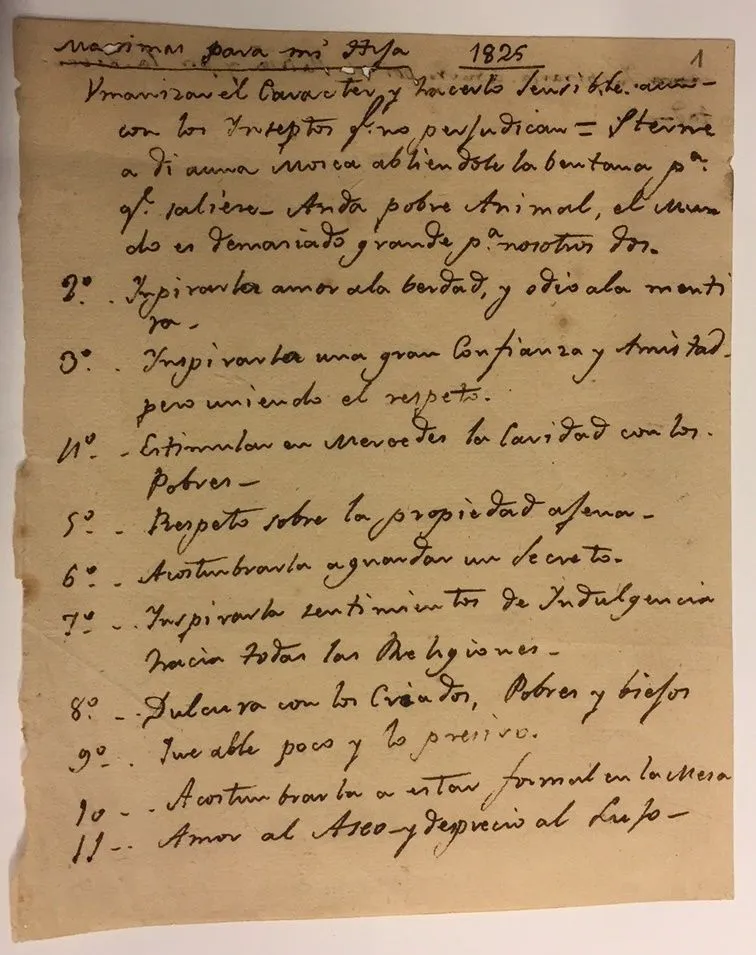 Maximas para mi Hija 1825 1
Vmanizar él Caracter y hacerlo sensible aun-
con los Insectos q.e no perjudican = Sterne
a di auna Mosca abliendole la bentana p.a
q.e saliese - Anda pobre Animal, el Mun
do es demaciado grande p.a nosotros dos.
2º - Inpirarla amor ala berdad, y odio ala menti
ra -
3º - Inspirarla una gran Confianza y Amistad
pero uniendo el respeto.
4º - Estimular en Mercedes la Caridad con los
Pobres -
5º - Respeto sobre la propiedad ajena -
6º - Acostunbrarla aguardar un Secreto.
7º - Inspirarla sentimientos de Indulgencia
hacia todas las Religiones -
8º - Dulcura con los Criados, Pobres y biejos
9º - Que able poco y lo presiso.
10 - Acostunbrarla a estar formal en la Mesa
11 - Amor al Aseo y desprecio al Lujo -